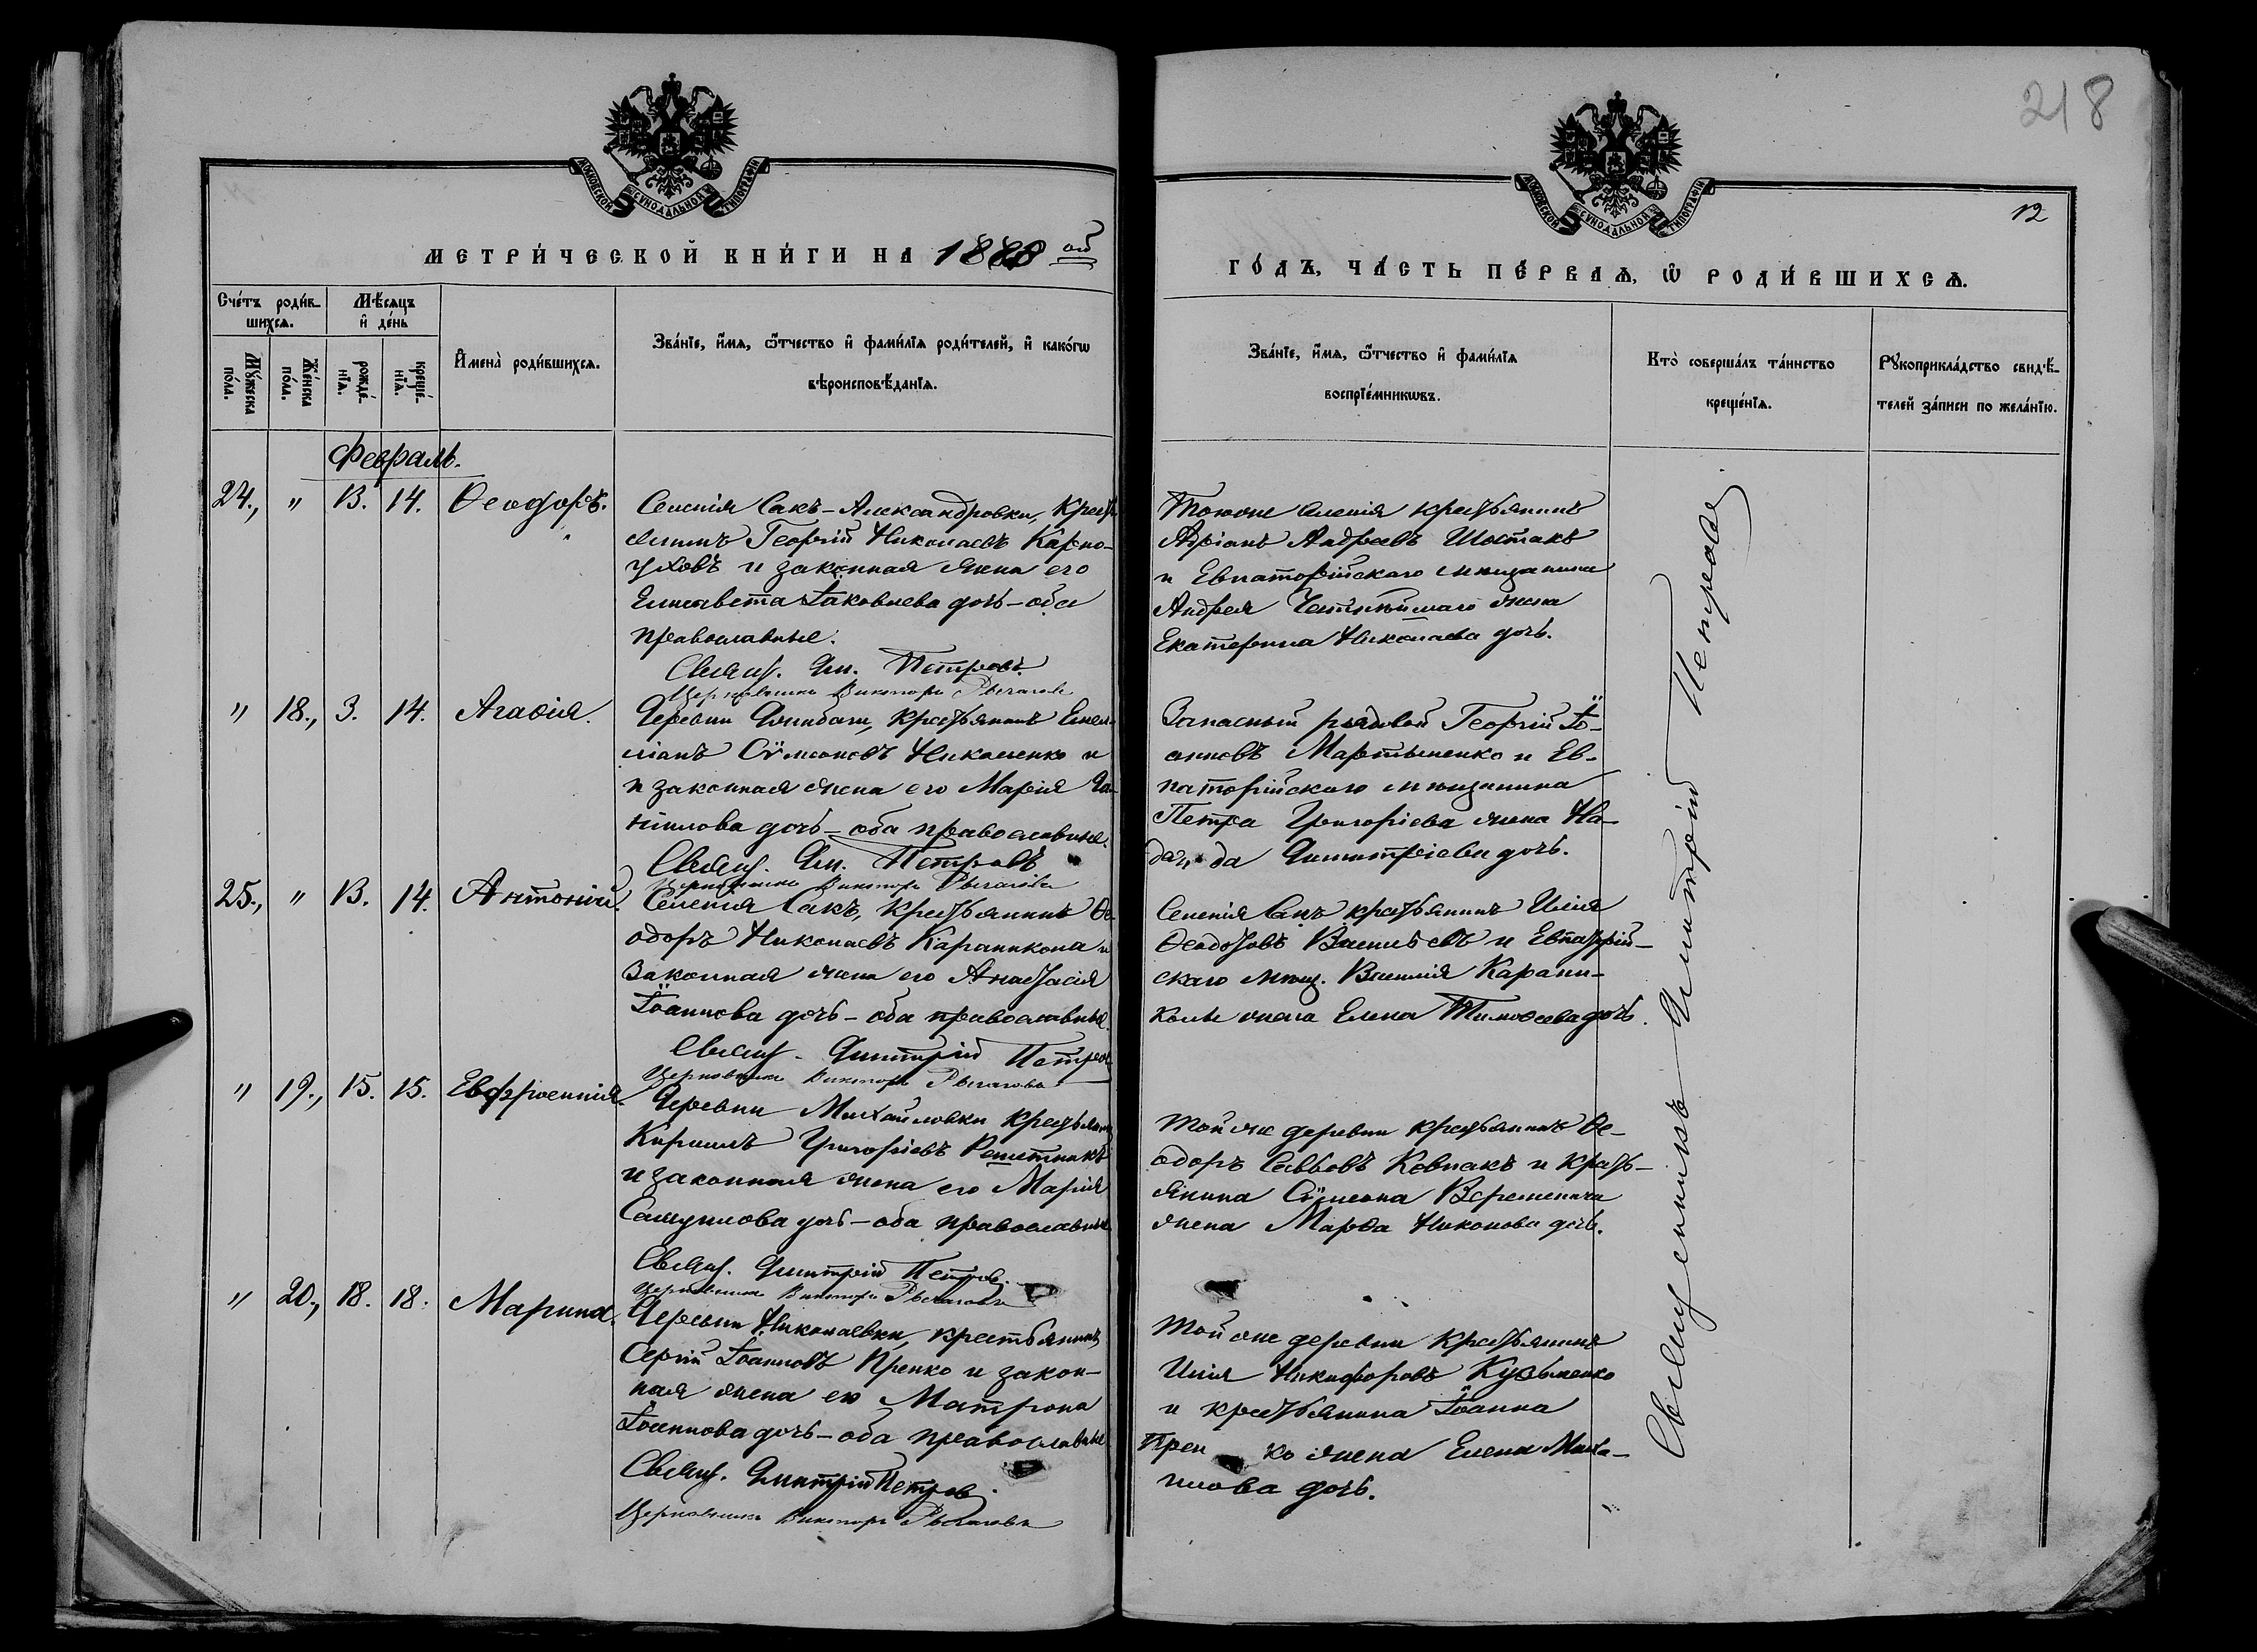 218
МОСКОВСКОЙ СѴНОДАЛЬНОЙ ТИПОГРАФІИ
МОСКОВСКОЙ СѴНОДАЛЬНОЙ ТИПОГРАФІИ
12
МЕТРИ́ЧЕСКОЙ КНИ́ГИ НА 1888 ой
ГО́ДЪ, ЧА́СТЬ ПЕ́РВАѦ, Ѡ҆ РОДИ́ВШИХСѦ.
Сче́тъ роди́в-
шихсѧ.
Мѣ́сѧцъ
и҆ де́нь
Мꙋ́жеска
по́ла.
Же́нска
по́ла.
рожде́-
нїѧ.
креще́-
нїѧ.
И҆мена̀ роди́вшихсѧ.
Зва́нїе, и҆́мѧ, ѻ҆́тчество и҆ фами́лїѧ роди́телей, и҆ како́гѡ
вѣроисповѣ́данїѧ.
Зва́нїе, и҆́мѧ, ѻ҆́тчество и҆ фами́лїѧ
воспрїе́мникѡвъ.
Кто̀ соверша́лъ та́инство
креще́нїѧ.
Рꙋкоприкла́дство свидѣ́-
телей за́писи по жела́нїю.
Февраль.
24., " 13. 14. Ѳеодоръ.
Селенія Сакъ-Александровки, крестъ-
янинъ Георгій Николаевъ Карно-
уховъ и законная жена его
Елисавета Іаковлева дочь - оба
православные.
Свящ. Дм. Петровъ
Церковникъ Викторъ
Тогоже селенія крестьянинъ
Адріанъ Андреевъ Шостакъ
и Евпаторійскаго мѣщанина
Андрея жена
Екатерина Николаева дочь.
" 18., 3. 14. Агаѳія.
Деревни крестьянинъ Емели-
ліанъ Сѵмеоновъ Николенко и
и законная жена его Марія Да-
ніилова дочь - оба православные.
Свящ. Дм. Петровъ
Церковникъ Викторъ
Запасный рядовой Георгій Іо-
анновъ Мартыненко и Ев-
паторійскаго мѣщанина
Петра Григоріева жена На-
деж да Димитріева дочь.
25., " 13. 14. Антоній.
Селенія Сакъ, крестьянинъ Ѳе-
одоръ Николаевъ Караникола и
законная жена его Анастасія
Іоаннова дочь - оба православные.
Свящ. Димитрій Петровъ
Церковникъ Викторъ
Селенія Сакъ крестьянинъ Илія
Ѳеодотовъ Васильевъ и Евпаторій-
скаго мѣщ. Василія Карани-
колы жена Елена Тимоѳеева дочь.
" 19., 15. 15. Евфросинія.
Деревни Михайловки крестьянинъ
Кириллъ Григоріевъ Решетникъ
и законная жена его Марія
Самуилова дочь - оба православные
Свящ. Димитрій Петровъ.
Церковникъ Викторъ
Той же деревни крестьянинъ Ѳе-
одоръ Саввовъ Ковпакъ и кресть-
янина Сѵмеона
жена Марѳа Никонова дочь.
" 20., 18. 18. Марина.
Деревни Николаевки, крестьянинъ
Сергій Іоанновъ Пренко и закон-
ная жена его Матрона
Іоаннова дочь - оба православные
Свящ. Димитрій Петровъ.
Церковникъ Викторъ
Той же деревни крестьянинъ
Илія Никифоровъ Кузьменко
и крестьянина Іоанна
Прен ко жена Елена Миха-
илова дочь.
Священникъ Димитрій Петровъ.